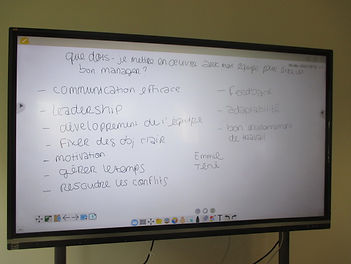 que dois-je mettre en oeuvre avec mon équipe pour être un
bon manager?
- communication efficace
- Leadership
- développement de l'équipe
- fixer des obj clair
- motivation
- gérer le temps
- resoudre les conflits
- Feedback
- adaptabilité
- bon environnement
de travail
Emmel